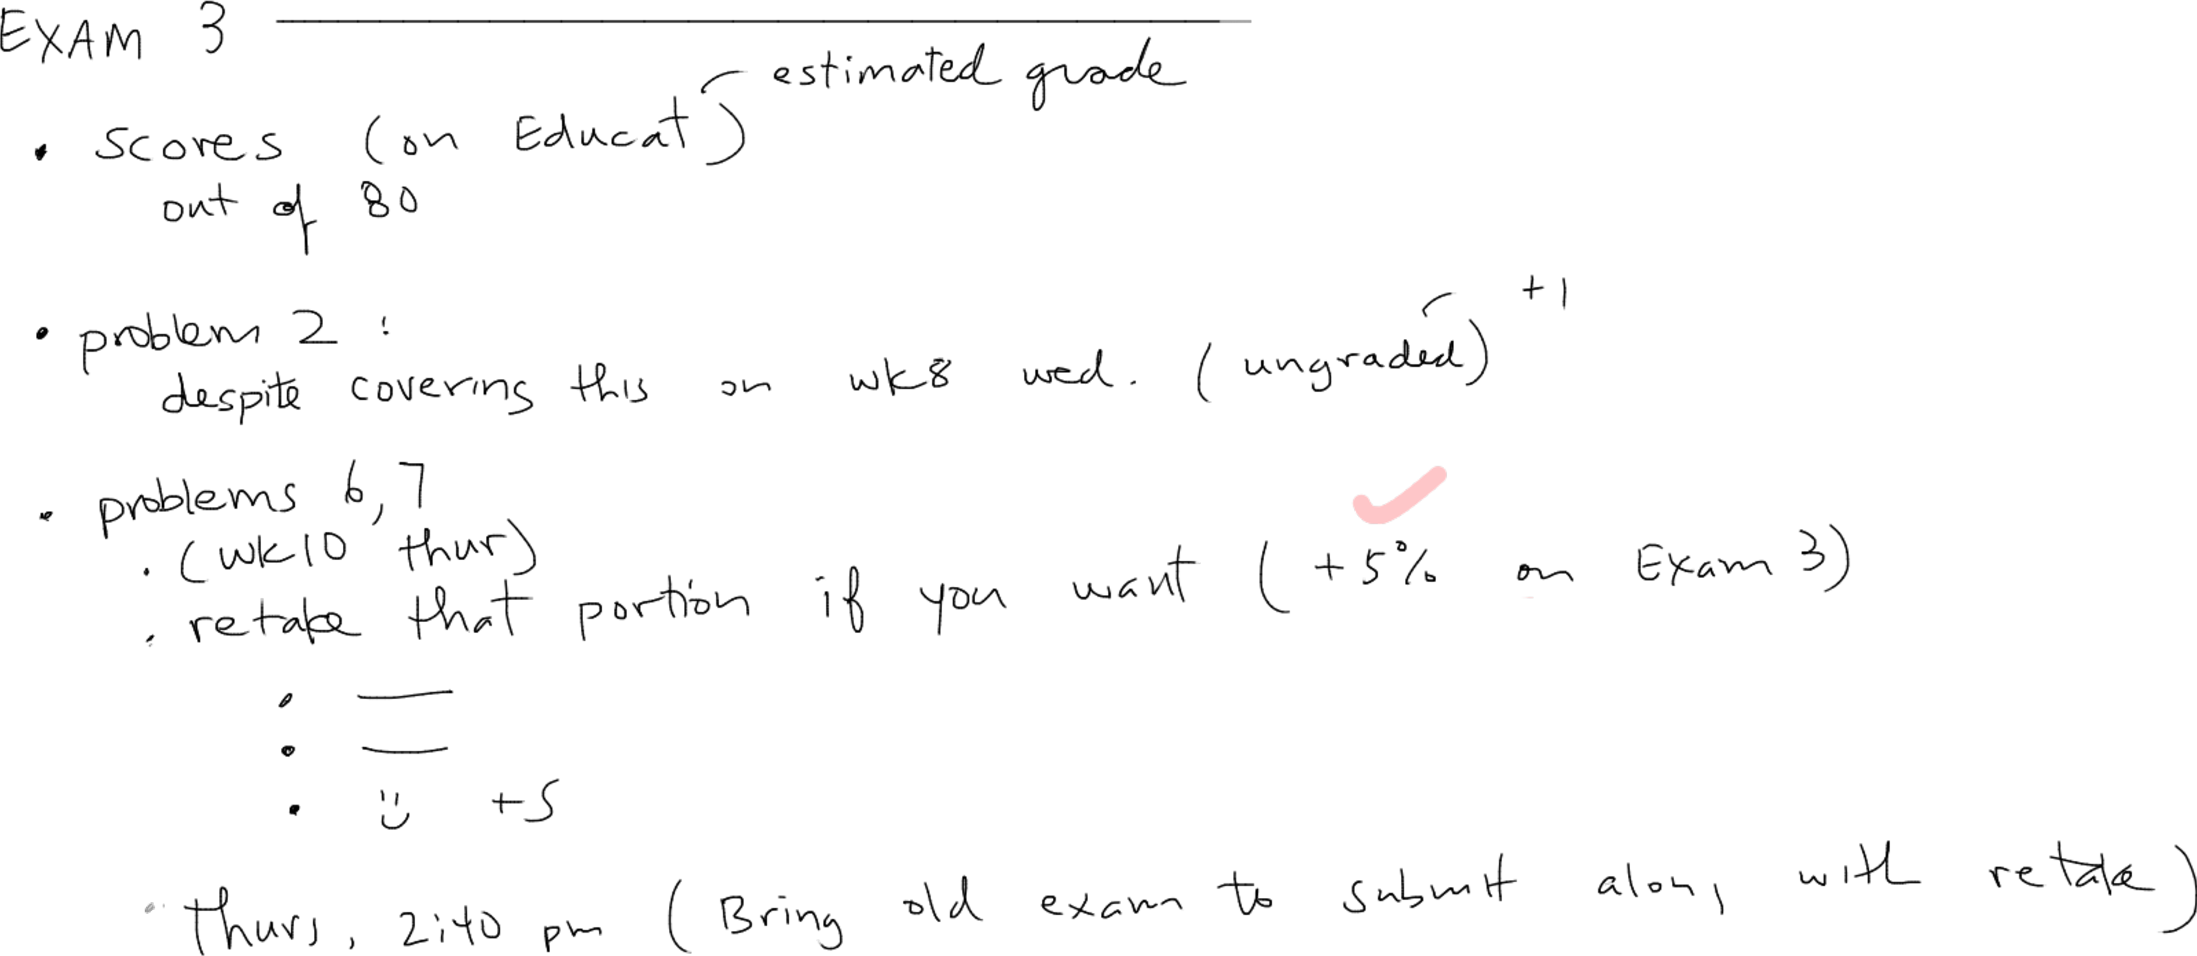 EXAM 3
estimated grade
• scores (on Educat)
out of 80
+1
• problem 2 :
despite covering this on wk8 wed. (ungraded)
• problems 6,7
• (wk10 thur)
• retake that portion if you want (+5% on Exam 3)
•
•
• +5
• thurs, 2:40 pm (Bring old exam to submit along with retake)